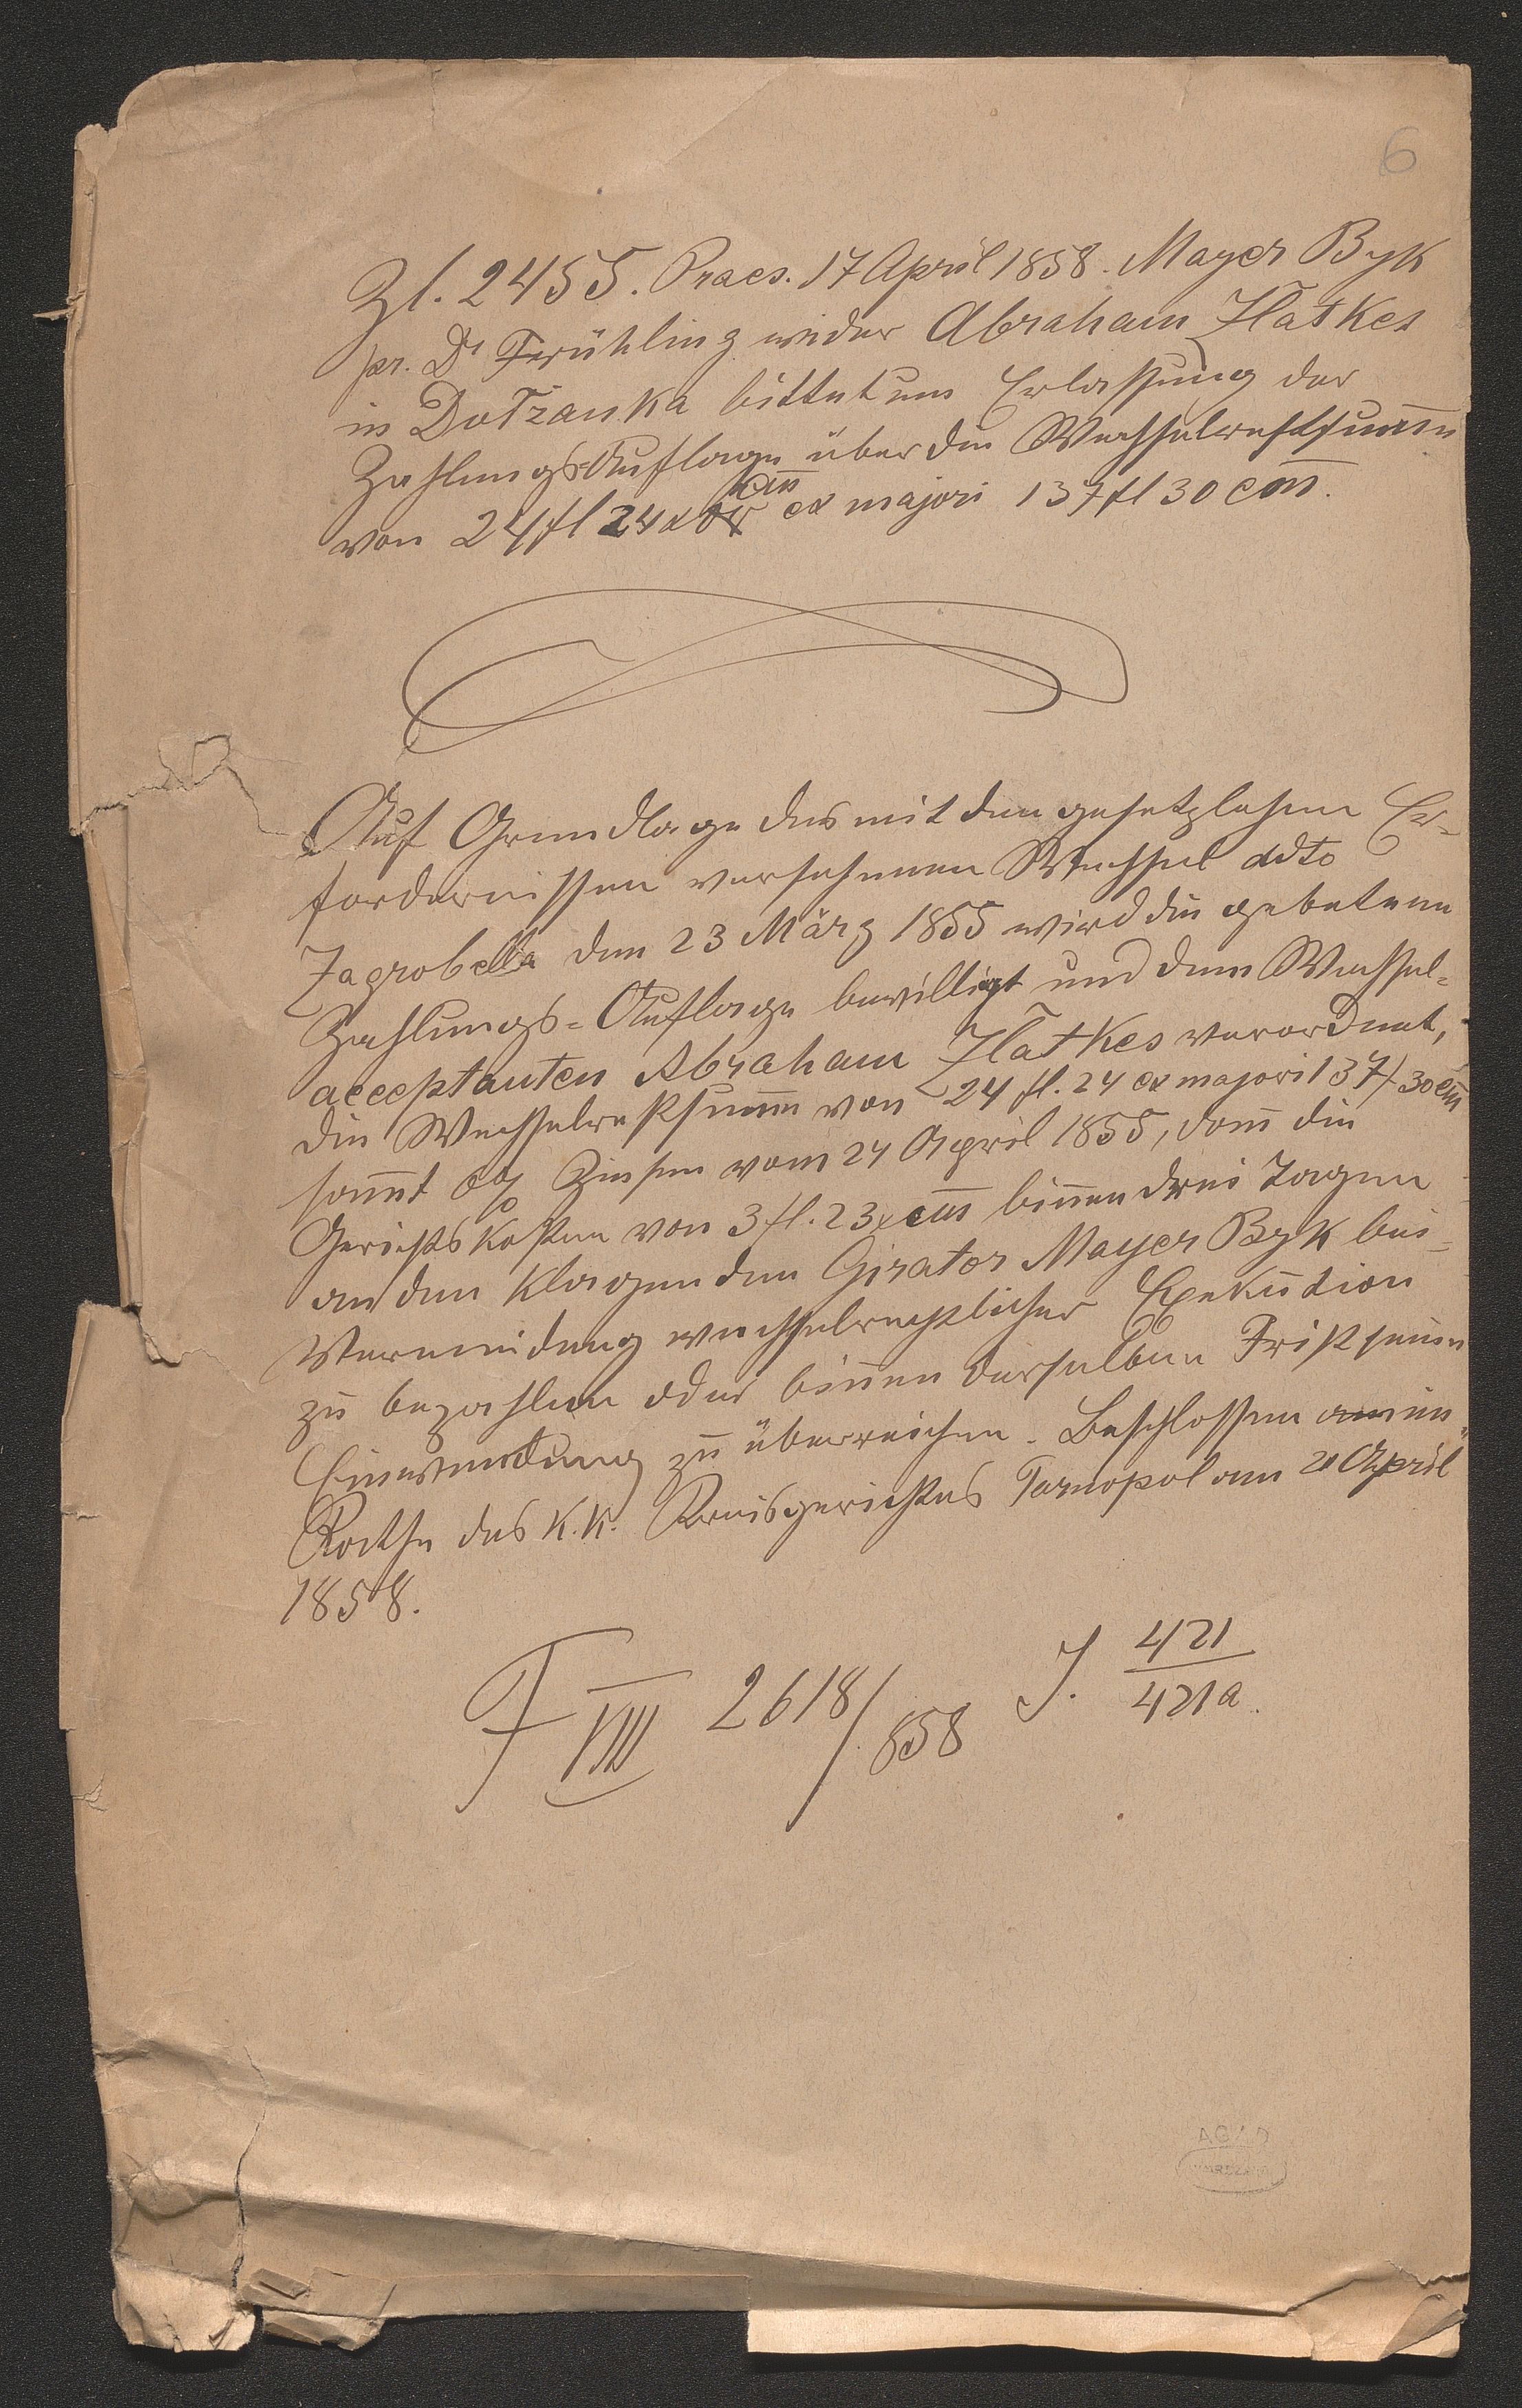 6
Zl. 2455. Praes. 17 April 1858. Mayer Byk
pr. Dr Frühling wider Abraham Zlatkes
in Dolzanka bittet um Erlassung der
Zahlungs-Auflage über die Wechselrestsum̄e
von 24 fl 24 x cm̄ ex majori 137 fl 30 cm̄.
Auf Grundlage des mit den gesetzlichen Er-
fordernissen versehenen Wechsel ddto
Zagrobella den 23 März 1855 wird die gebetene
Zahlungs-Auflage bewilligt und dem Wechsel-
acceptanten Abraham Zlatkes verordnet,
die Wechselrestsum̄e von 24 fl. 24 ex majori 137 f 30 cm̄
sam̄t 6% Zinsen vom 24 April 1855, dan̄ die
Gerichtskosten von 3 fl. 23 x cm̄ bin̄en drei Tagen
an den klagenden Girator Mayer Byk bei
Vermeidung wechselrechtlicher Exekution
zu bezahlen oder bin̄en derselben Frist seine
Einwendung zu überreichen. Beschlossen im
Rathe des k.k. Kreisgerichtes Tarnopol am 21 April
1858.
F VIII 2618/858 J. 421/421a.
AGAD
WARSZAWA